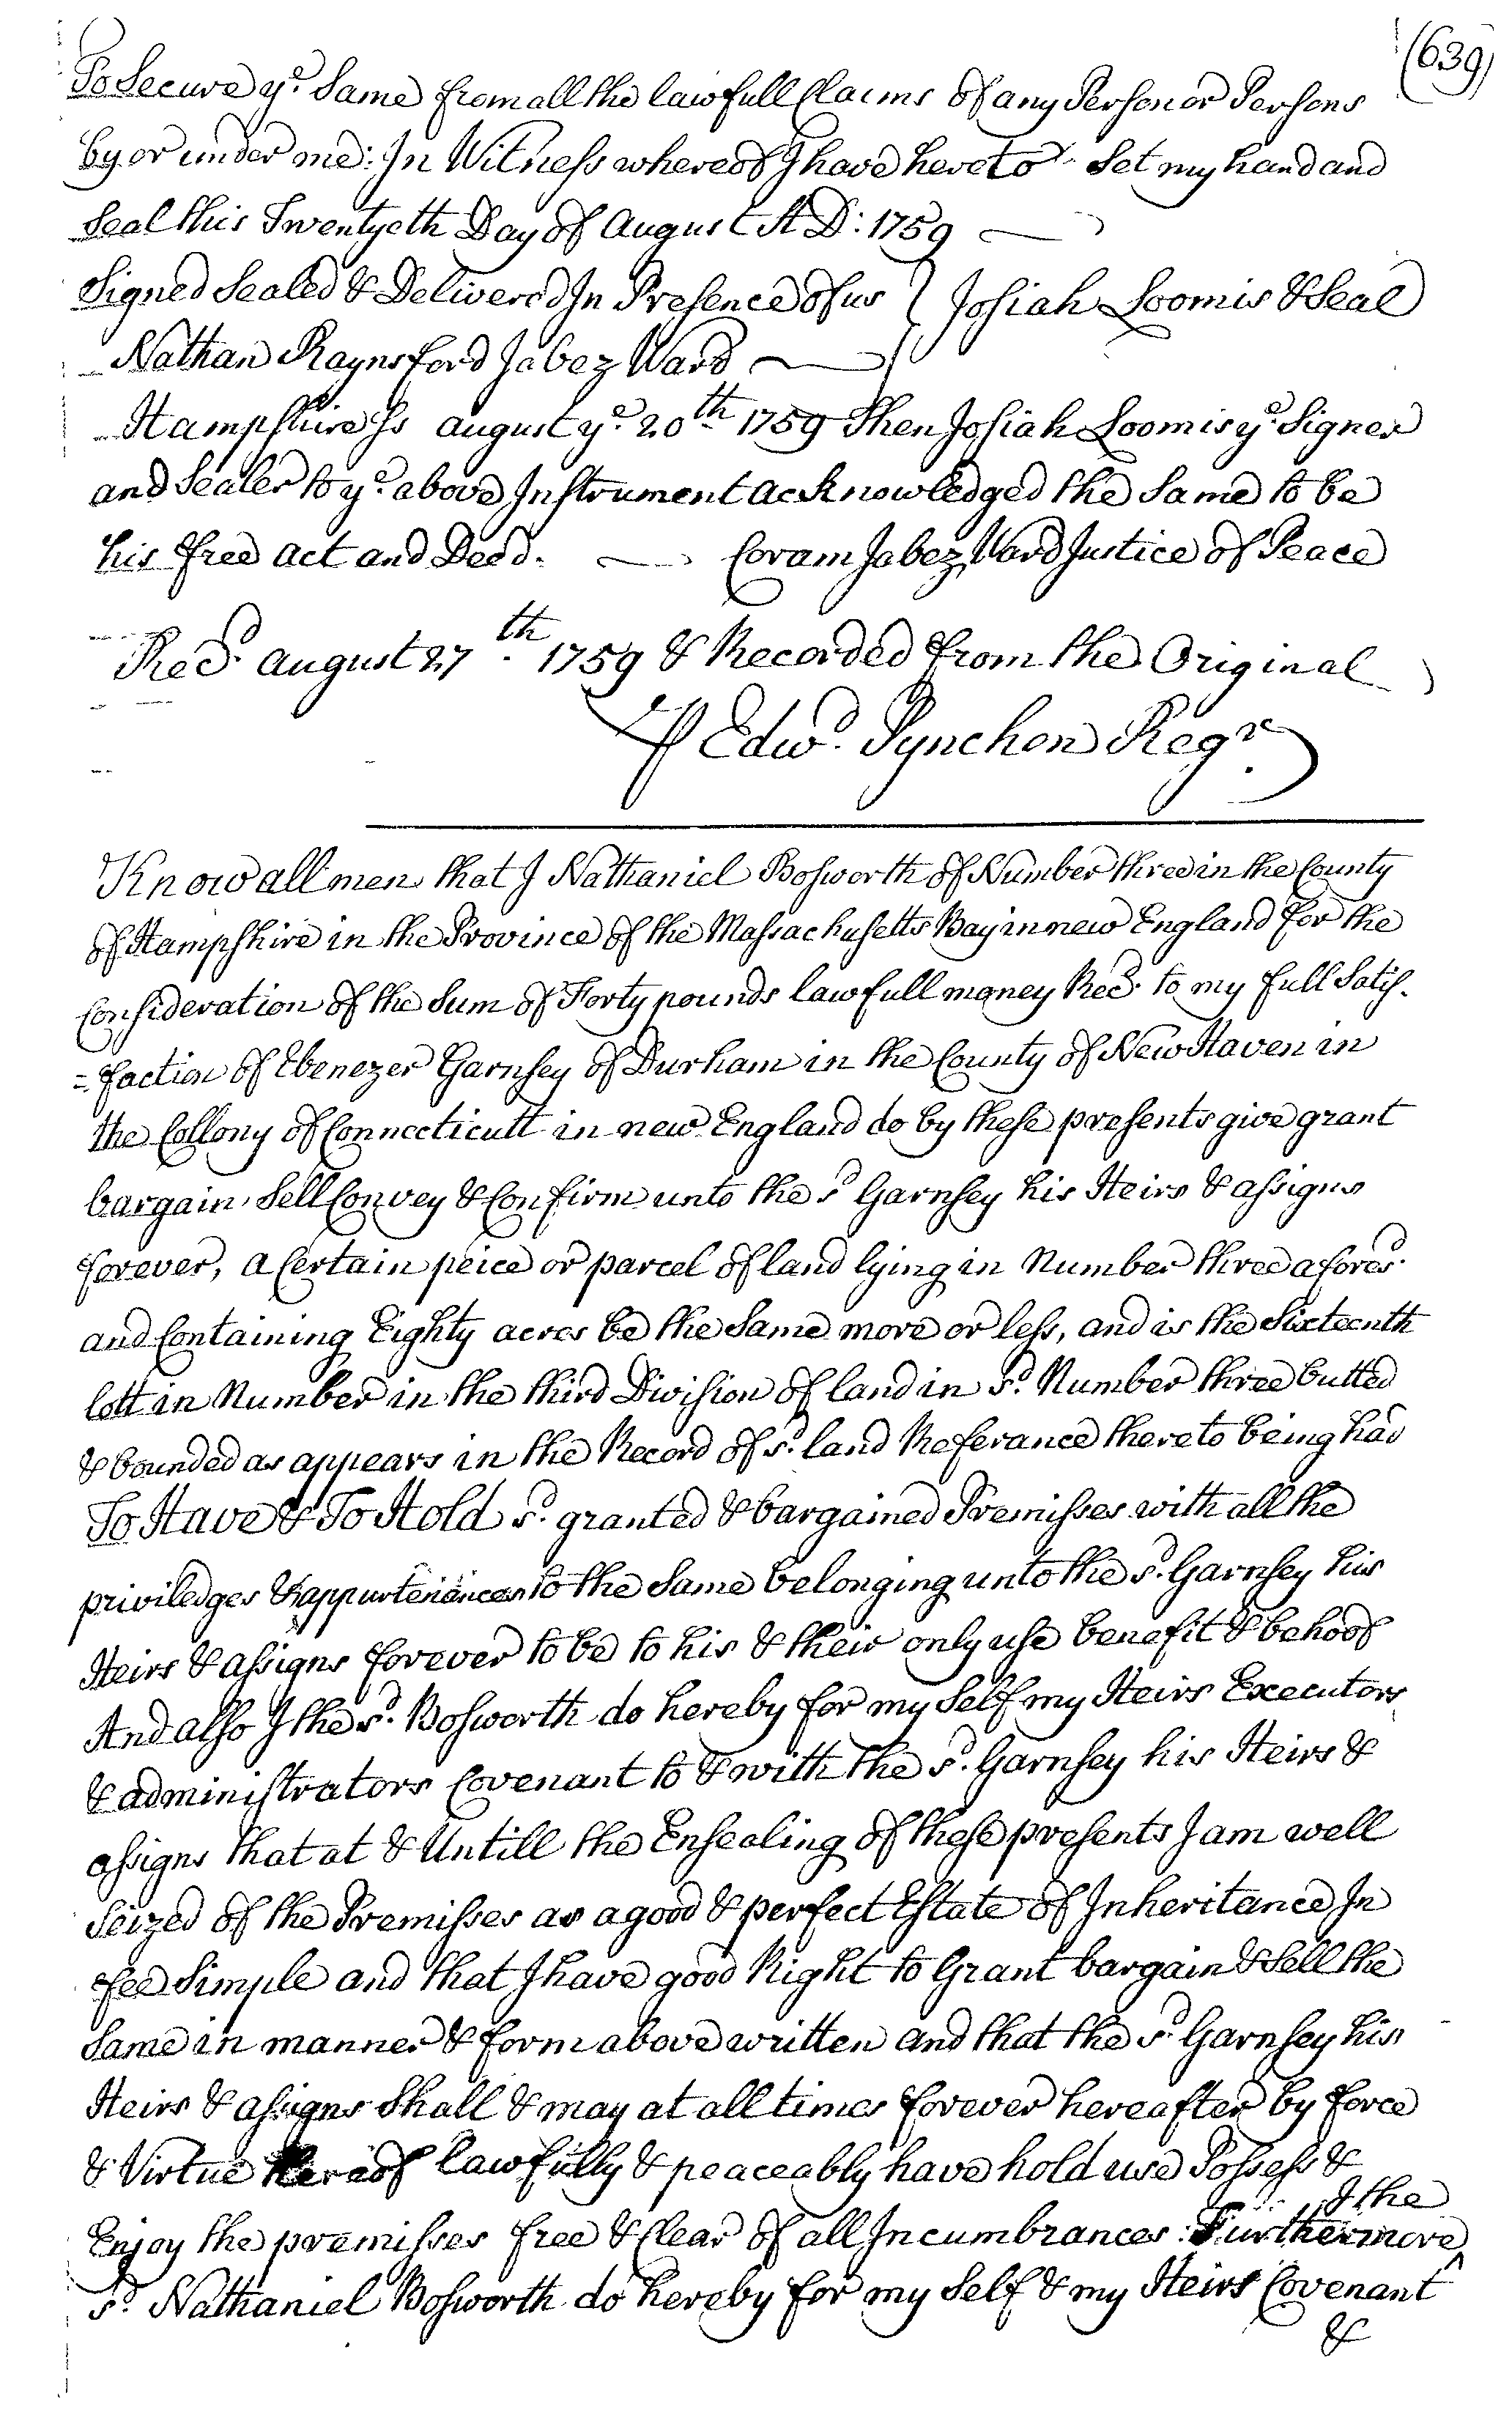 (639)
To Secure ye. Same from all the lawfull Claims of any Person or Persons
by or under me: In Witness whereof I have hereto Set my hand and
Seal this Twentyeth Day of August A D: 1759
Signed Sealed & Delivered In Presence of us } Josiah Loomis & Seal
Nathan Raynsford Jabez Ward
Hampshire Ss August ye. 20th 1759 Then Josiah Loomis ye. Signer
and Sealer to ye. above Instrument acknowledged the Same to be
his free act and Deed. Coram Jabez Ward Justice of Peace
Recd. August 27th. 1759 & Recorded from the Original
P Edwd. Pynchon Regr.
Know all men that I Nathaniel Bosworth of Number three in the County
of Hampshire in the Province of the Massachusetts Bay in new England for the
Consideration of the Sum of Forty pounds lawfull money Recd. to my full Satis-
=faction of Ebenezer Garnsey of Durham in the County of New Haven in
the Collony of Connecticutt in new England do by these presents give grant
bargain Sell Convey & Confirm unto the sd Garnsey his Heirs & assigns
forever, a Certain peice or parcel of land lying in Number three aforesd.
and Containing Eighty acres be the Same more or less, and is the Sixteenth
lott in Number in the third Division of land in sd. Number three butted
& bounded as appears in the Record of sd. land Referance thereto being had
To Have & To Hold sd. granted & bargained Premisses with all the
priviledges & appurtenances to the Same belonging unto the sd. Garnsey his
Heirs & assigns forever to be to his & their only use benefit & behoof
And also I the sd. Bosworth do hereby for my Self my Heirs Executors
& administrators Covenant to & with the sd. Garnsey his Heirs &
assigns that at & Untill the Ensealing of these presents I am well
Seized of the Premisses as a good & perfect Estate of Inheritance In
fee Simple and that I have good Right to Grant bargain & Sell the
Same in manner & form above written and that the sd. Garnsey his
Heirs & assigns Shall & may at all times forever hereafter by force
& Virtue hereof lawfully & peaceably have hold use Possess &
Enjoy the premisses free & Clear of all Incumbrances: Furthermore ^ I the
sd. Nathaniel Bosworth do hereby for my Self & my Heirs Covenant
&